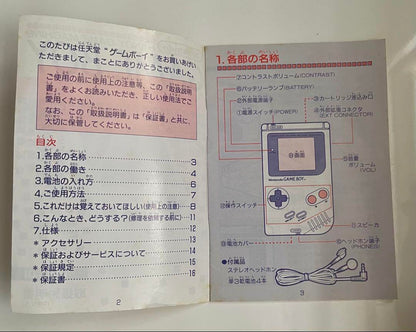 このたびは任天堂 "ゲームボーイ" をお買いあげい
ただきまして、まことにありがとうございました。
ご使用の前に使用上の注意等、この「取扱説明
書」をよくお読みいただき、正しい使用法でご
愛用ください。
なお、この「取扱説明書」は「保証書」と共に、
大切に保管してください。
目次
1.各部の名称 3
2.各部の働き 4
3.電池の入れ方 6
4.ご使用方法 7
5.これだけは覚えておいてほしい(使用上の注意) 8
6.こんなとき、どうする?(修理を依頼する前に) 11
7.仕様 12
＊アクセサリー 13
＊保証およびサービスについて 14
＊保証規定 15
＊保証書 16
2
1.各部の名称
⑦コントラストボリューム(CONTRAST)
⑥バッテリーランプ(BATTERY)
②外部電源端子
①電源スイッチ(POWER)
③カートリッジ差込み口
④外部拡張コネクタ
(EXT CONNECTOR)
⑧画面
⑤音量
ボリューム
(VOL)
GAME BOY
⑫操作スイッチ
⑪スピーカ
電池カバー
⑩ヘッドホン端子
(PHONES)
●付属品
ステレオヘッドホン
単3乾電池4本
3